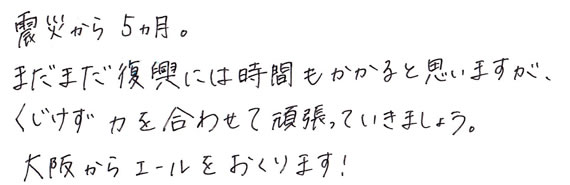 震災から5ヵ月。
まだまだ復興には時間もかかると思いますが、
くじけず力を合わせて頑張っていきましょう。
大阪からエールをおくります!